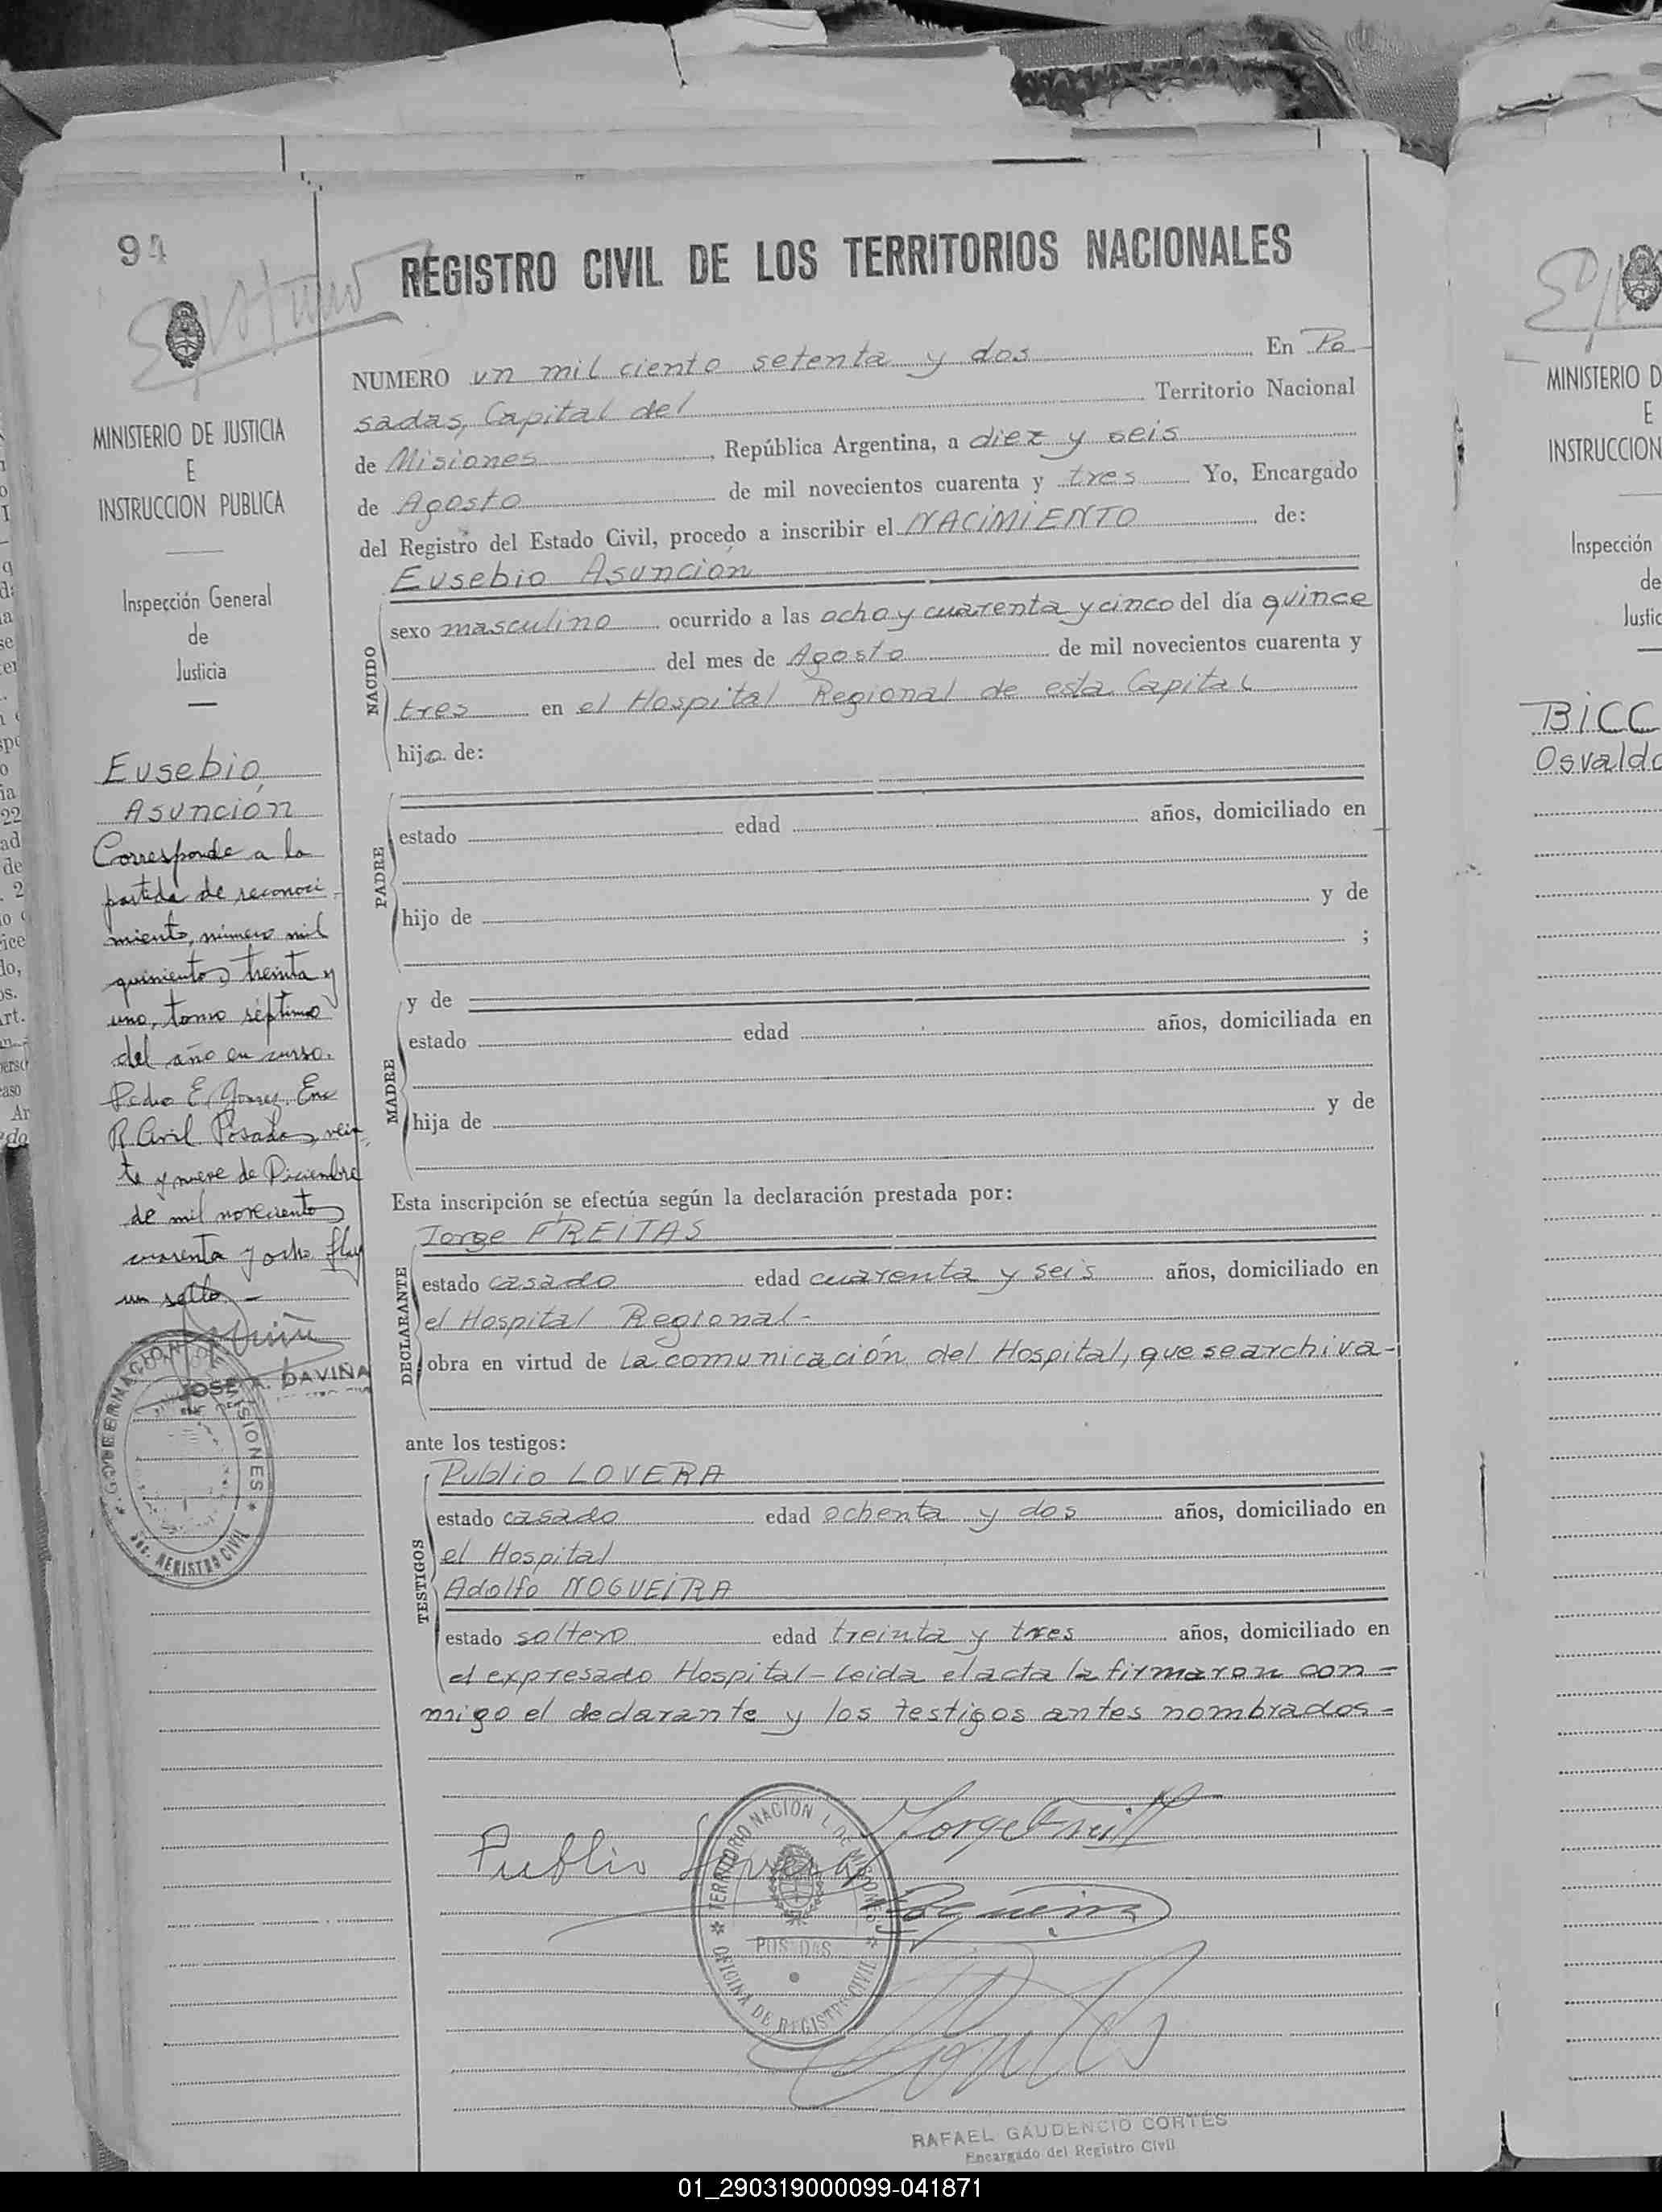 94
REGISTRO CIVIL DE LOS TERRITORIOS NACIONALES
MINISTERIO DE JUSTICIA
E
INSTRUCCION PUBLICA
Inspección General
de
Justicia
Eusebio
Asunción
Corresponde a la
partida de reconoci
miento, número mil
quinientos treinta y
uno, tomo séptimo
del año en curso.
Pedro E. Gomez. Enc
R. Civil. Posadas, vein
te y nueve de Diciembre
de mil novecientos
cuarenta y ocho. Hay
un sello. -
JOSE A. DAVIÑA
GOBERNACION DE MISIONES
SEC. REGISTRO CIVIL
NUMERO un mil ciento setenta y dos En Po
sadas, Capital del Territorio Nacional
de Misiones, República Argentina, a diez y seis
de Agosto de mil novecientos cuarenta y tres Yo, Encargado
del Registro del Estado Civil, procedo a inscribir el NACIMIENTO de:
Eusebio Asunción
NACIDO
sexo masculino ocurrido a las ocho y cuarenta y cinco del día quince
del mes de Agosto de mil novecientos cuarenta y
tres en el Hospital Regional de esta Capital
hijo de:
PADRE
estado edad años, domiciliado en
hijo de y de
;
MADRE
y de
estado edad años, domiciliada en
hija de y de
Esta inscripción se efectúa según la declaración prestada por:
DECLARANTE
Jorge FREITAS
estado casado edad cuarenta y seis años, domiciliado en
el Hospital Regional-
obra en virtud de la comunicación del Hospital, que se archiva-
ante los testigos:
TESTIGOS
Publio LOVERA
estado casado edad ochenta y dos años, domiciliado en
el Hospital
Adolfo NOGUEIRA
estado soltero edad treinta y tres años, domiciliado en
el expresado Hospital-Leida el acta la firmaron con-
migo el declarante y los testigos antes nombrados=
Jorge Freitas
Publio Lovera
Nogueira
TERRITORIO NACIONAL DE MISIONES
POSADAS
OFICINA DE REGISTRO CIVIL
Cortes
RAFAEL GAUDENCIO CORTÉS
Encargado del Registro Civil
MINISTERIO D
E
INSTRUCCION
Inspección
de
Justic
BICC
Osvaldo
01_290319000099-041871